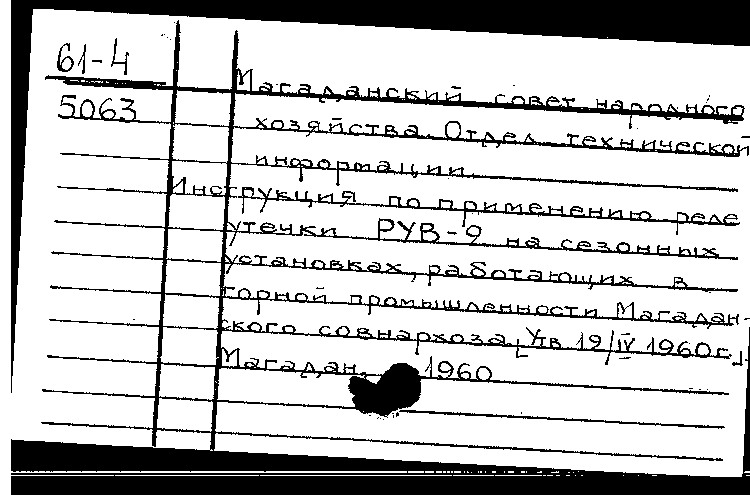 61-4
5063
Магаданский совет народного
хозяйства. Отдел технической
информации.
Инструкция по применению реле
утечки РУВ-2 на сезонных
установках, работающих в
горной промышленности Магадан-
ского совнархоза. [Утв 19/IV 1960г.].
Магадан, 1960